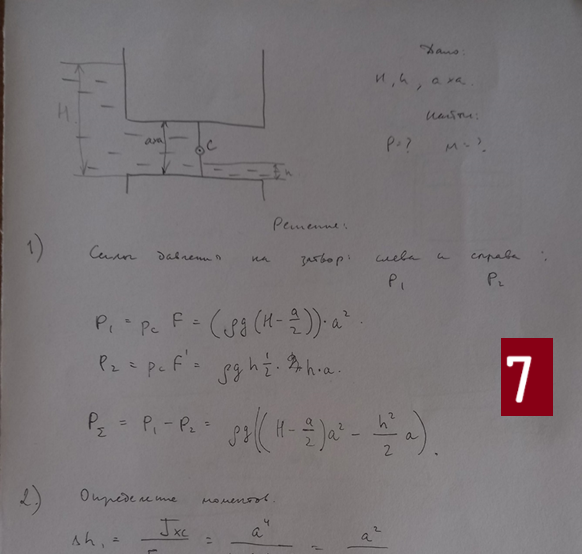 Дано:
H, h, axa.
Найти:
P=? M=?
H
axa
C
h
Решение:
1) Силы давления на затвор: слева и справа:
P₁ P₂
P₁ = pc F = (ρg(H-a/2))·a².
P₂ = pc F' = ρg h 1/2 · h·a.
P_Σ = P₁ - P₂ = ρg((H-a/2)a² - h²/2 a).
7
2.) Определение моментов.
Δh₁ = Jxc = a⁴ = a²